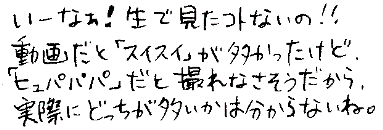 いーなぁ!生で見たコトないの!!
動画だと「スイスイ」が多かったけど、
「ヒュパパパ」だと撮れなさそうだから、
実際にどっちが多いかは分からないね。